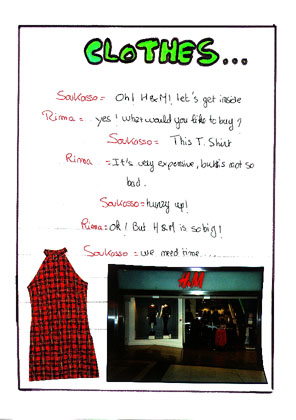 CLOTHES...
Soukosso = Oh! H&M! let's get inside
Rima = yes! what would you like to buy?
Soukosso = This T. Shirt
Rima = It's very expensive, but it's not so
bad.
Soukosso = hurry up!
Rima = Ok! But H&M is so big!
Soukosso = we need time....
H&M